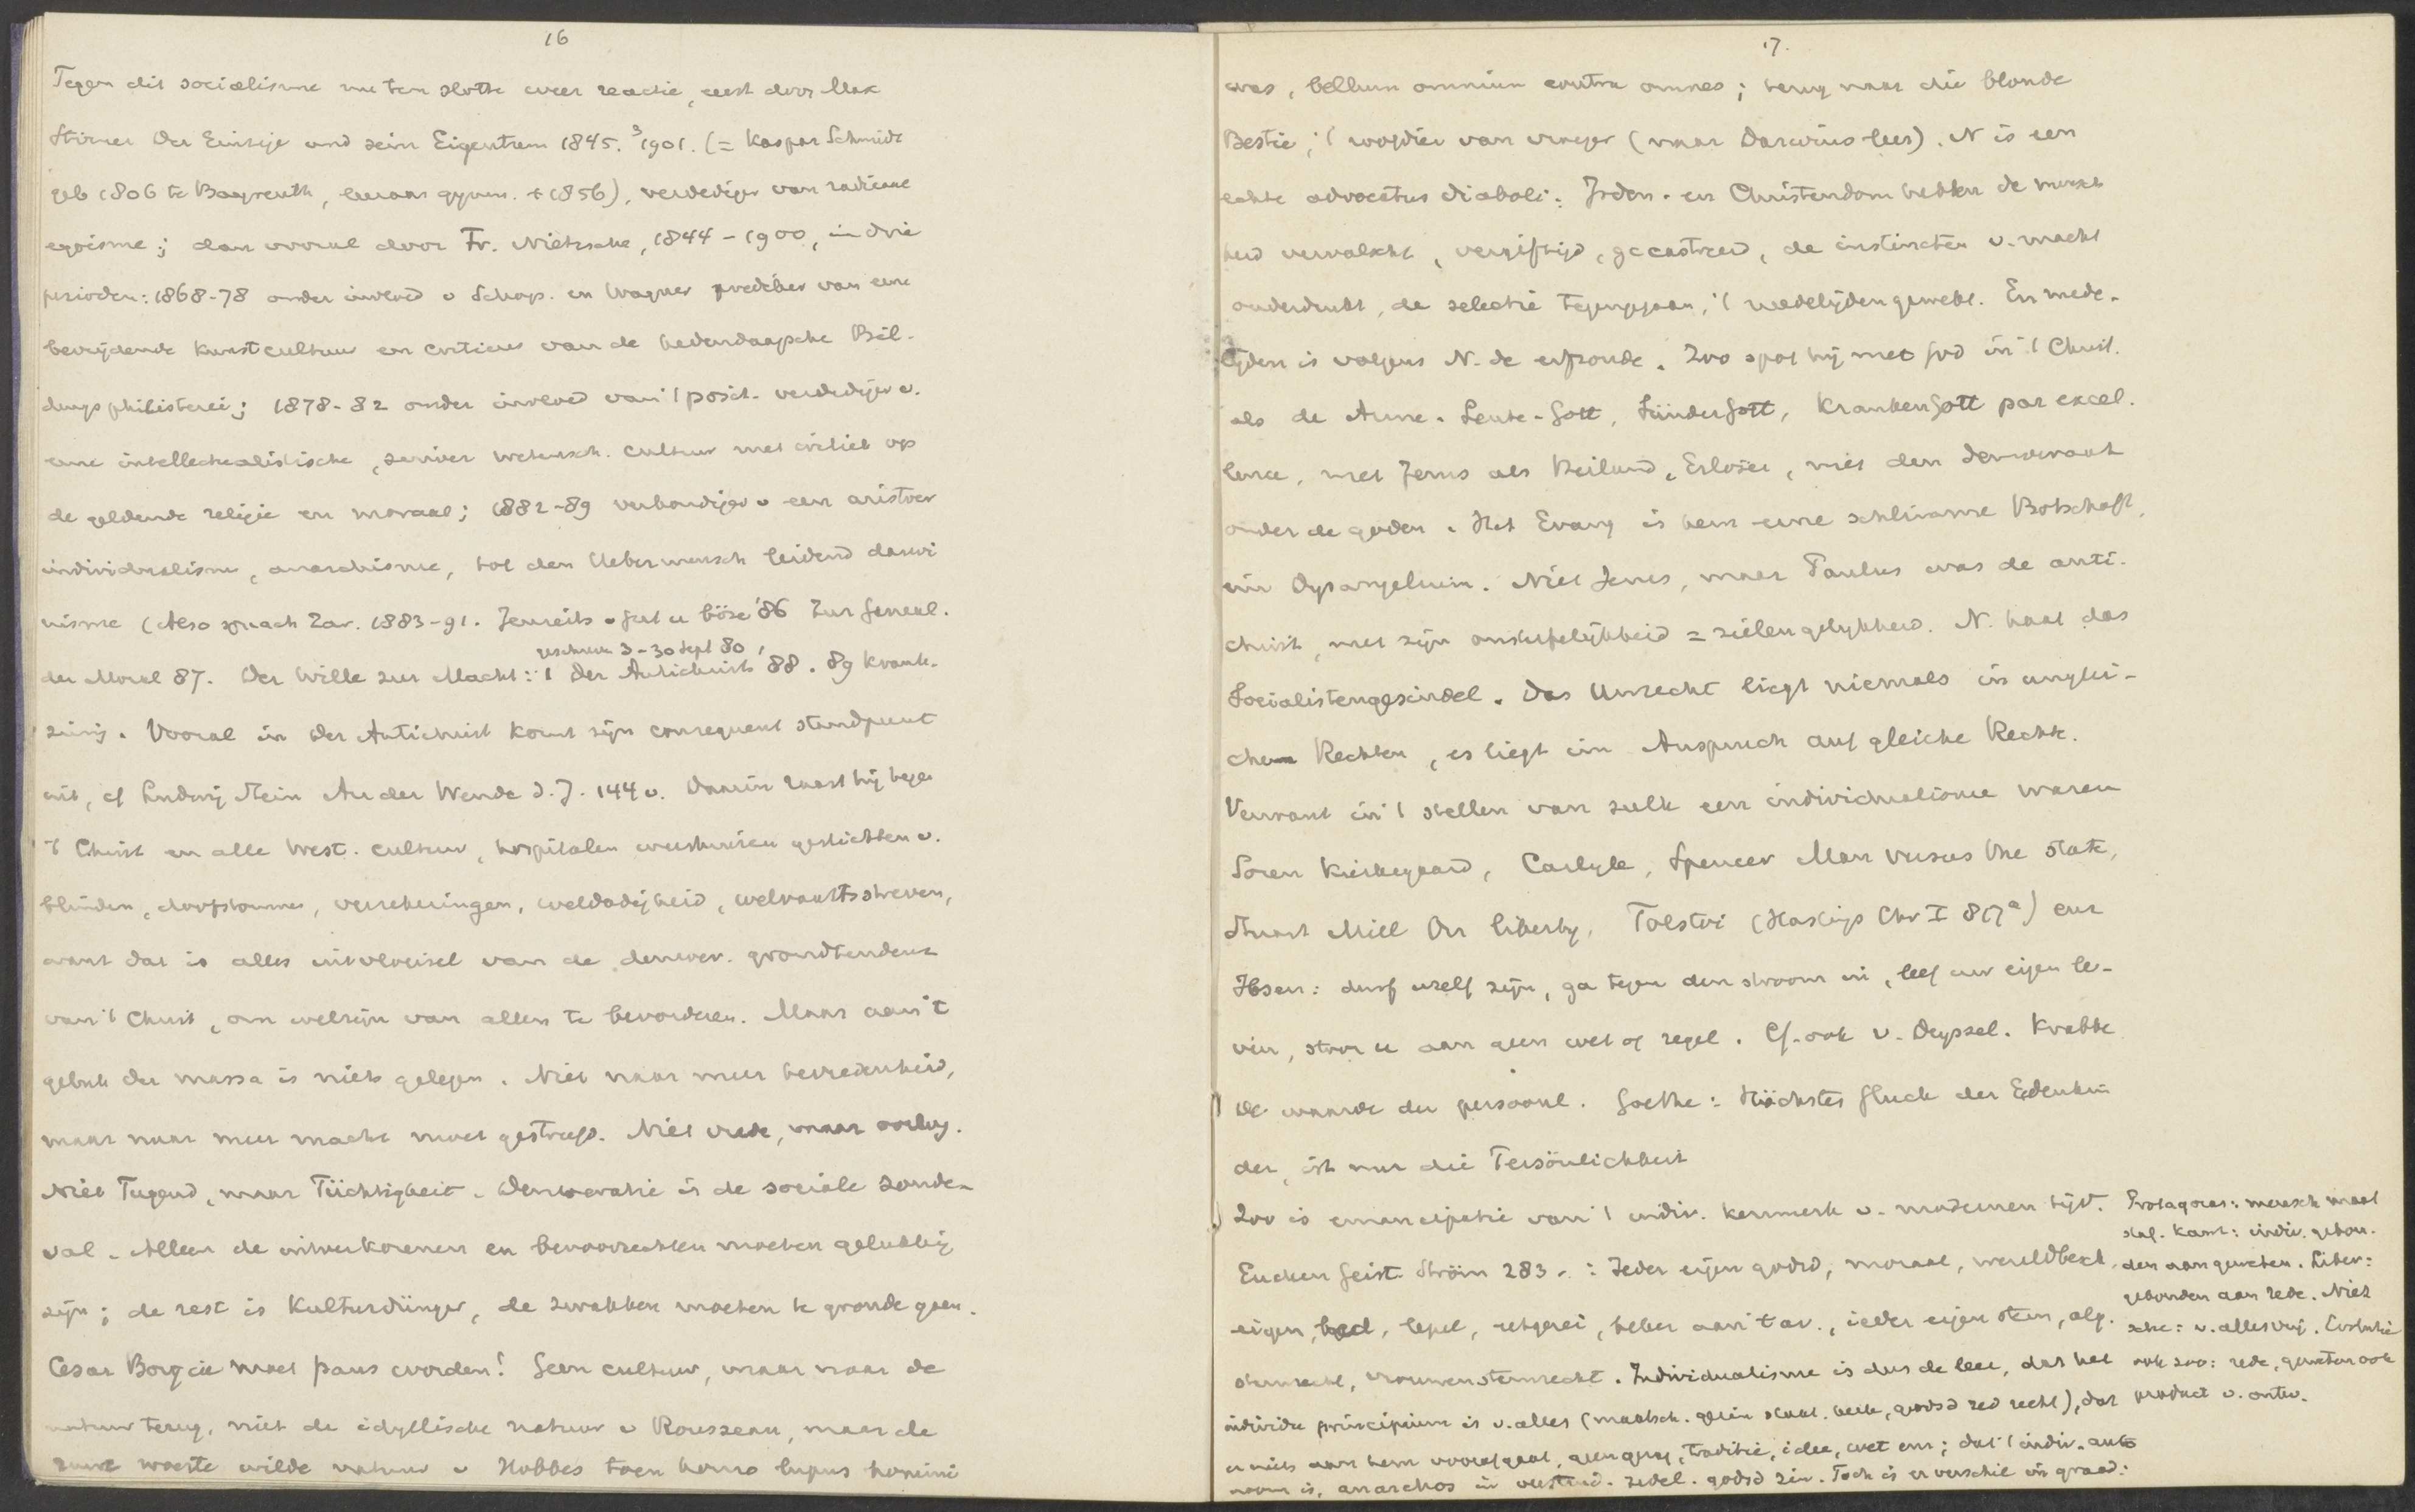 16
Tegen dit socialisme nu ten slotte weer reactie, eerst door Max
Stirner Der Einzige und sein Eigentum 1845. ³1901. (= Kaspar Schmidt
geb 1806 te Bayreuth, leeraar gymn. + 1856), verdediger van radicaal
egoisme; dan vooral door Fr. Nietzsche, 1844-1900, in drie
perioden: 1868-78 onder invloed v Schop. en Wagner prediker van eene
bevrijdende kunstcultuur en criticus van de hedendaagsche Bil-
dungsphilisterei; 1878-82 onder invloed van 't posit. verdediger v.
eene intellectualistische, zuiver wetensch. cultuur met critiek op
de geldende religie en moraal; 1882-89 verkondiger v een aristocr
individualisme, anarchisme, tot den Uebermensch leidend darwi
nisme (Also sprach Zar. 1883-91. Jenseits v gut u böse '86 Zur Geneal.
geschreven 3-30 Sept 80,
der Moral 87. Der Wille zur Macht: 1 Der Antichrist 88. 89 krank-
zinnig. Vooral in Der Antichrist komt zijn consequent standpunt
uit, cf Ludwig Stein An der Wende d. J. 144 v. Daarin raast hij tegen
't Christ en alle West. cultuur, hospitalen weeshuizen gestichten v.
blinden, doofstommen, verzekeringen, weldadigheid, welvaartsstreven,
want dat is alles uitvloeisel van de democr. grondtendenz
van 't Christ, om welzijn van allen te bevorderen. Maar aan 't
geluk der massa is niets gelegen. Niet naar meer tevredenheid,
maar naar meer macht moet gestreefd. Niet vrede, maar oorlog.
Niet Tugend, maar Tüchtigkeit. Democratie is de sociale zonde-
val. Alleen de uitverkorenen en bevoorrechten moeten gelukkig
zijn; de rest is Kulturdünger, de zwakken moeten te gronde gaan.
Cesar Borgia moet paus worden! Geen cultuur, maar naar de
natuur terug, niet de idyllische natuur v Rousseau, maar de
woeste wilde natuur v Hobbes toen homo lupus homini
17.
was, bellum omnium contra omnes; terug naar die blonde
Bestie, 't roofdier van vroeger (naar Darwins leer). N is een
echte advocatus diaboli: Joden- en Christendom hebben de mensch
heid vervalscht, vergiftigd, gecastreerd, de instincten v. macht
onderdrukt, de selectie tegengegaan, 't medelijden gewekt. En mede-
lijden is volgens N. de erfzonde. Zoo spot hij met God in 't Christ.
als de Arme-Leute-Gott, Sündergott, Krankengott par excel-
lence, met Jezus als Heiland, Erlöser, met den democraat
onder de goden. Het Evang is hem eine schlimme Botschaft,
ein Dysangelium. Niet Jezus, maar Paulus was de anti-
christ, met zijn onsterfelijkheid = zielengelijkheid. N. haat das
Socialistengesindel. Das Unrecht liegt niemals in unglei-
chen Rechten, es liegt im Anspruch auf gleiche Rechte.
Verwant in 't stellen van zulk een individualisme waren
Soren Kierkegaard, Carlyle, Spencer Man versus the State,
Stuart Mill On liberty, Tolstoi (Hastings Chr I 817ª) enz
Ibsen: durf uzelf zijn, ga tegen den stroom in, leef uw eigen le-
ven, stoor u aan geen wet of regel. Cf. ook v. Deyssel. Krabbe
De waarde der persoonl. Goethe: Höchstes Gluck der Erdenkin
der, ist nur die Persönlichkeit
Zoo is emancipatie van 't indiv. kenmerk v. modernen tijd.
Eucken Geist. Ström 283-: Ieder eigen godsd, moraal, wereldbesch,
eigen, bed, lepel, eetgerei, beker aan 't av., ieder eigen stem, alg.
stemrecht, vrouwenstemrecht. Individualisme is dus de leer, dat het
individu principium is v. alles (maatsch. gezin staat. kerk, godsd zed recht), dat
er niets aan hem voorafgaat, geen gezag, traditie, idee, wet enz; dat 't indiv. auto
noom is, anarchos in verstand. zedel. godsd zin. Toch is er verschil in graad:
Protagoras: mensch maat
staf. Kant: indiv. gebon-
den aan geweten. Liber:
gebonden aan rede. Niet
sche: v. alles vrij. Evolutie
ook zoo: rede, geweten ook
product v. ontw.